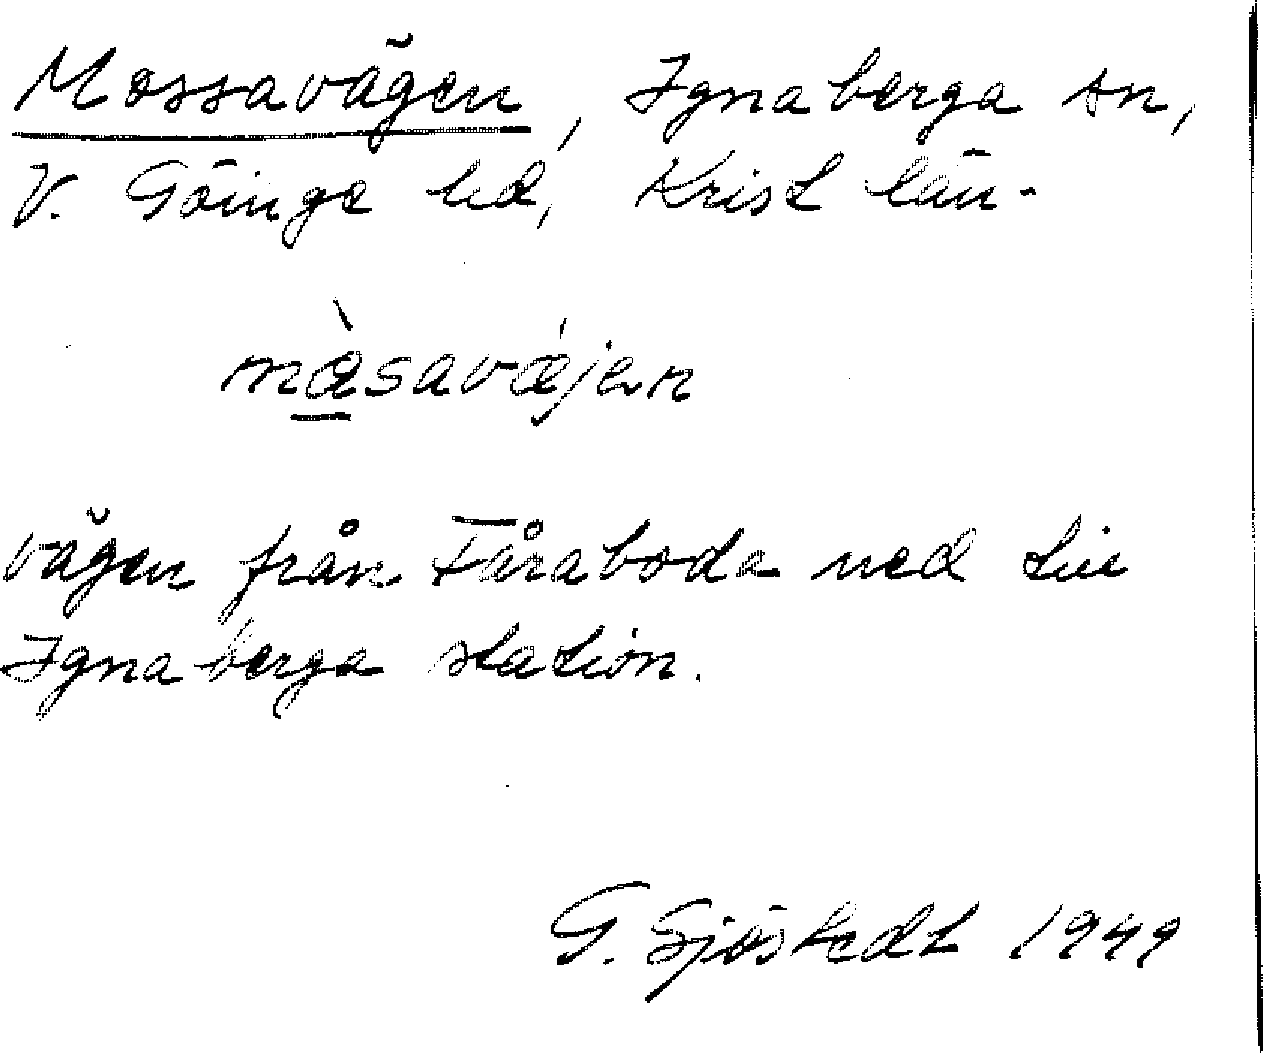 Mossavägen, Ignaberga sn,
V. Göinge hd, Krist län.
màsavájen
vägen från Fåraboda ned till
Ignaberga station.
G. Sjöstedt 1949